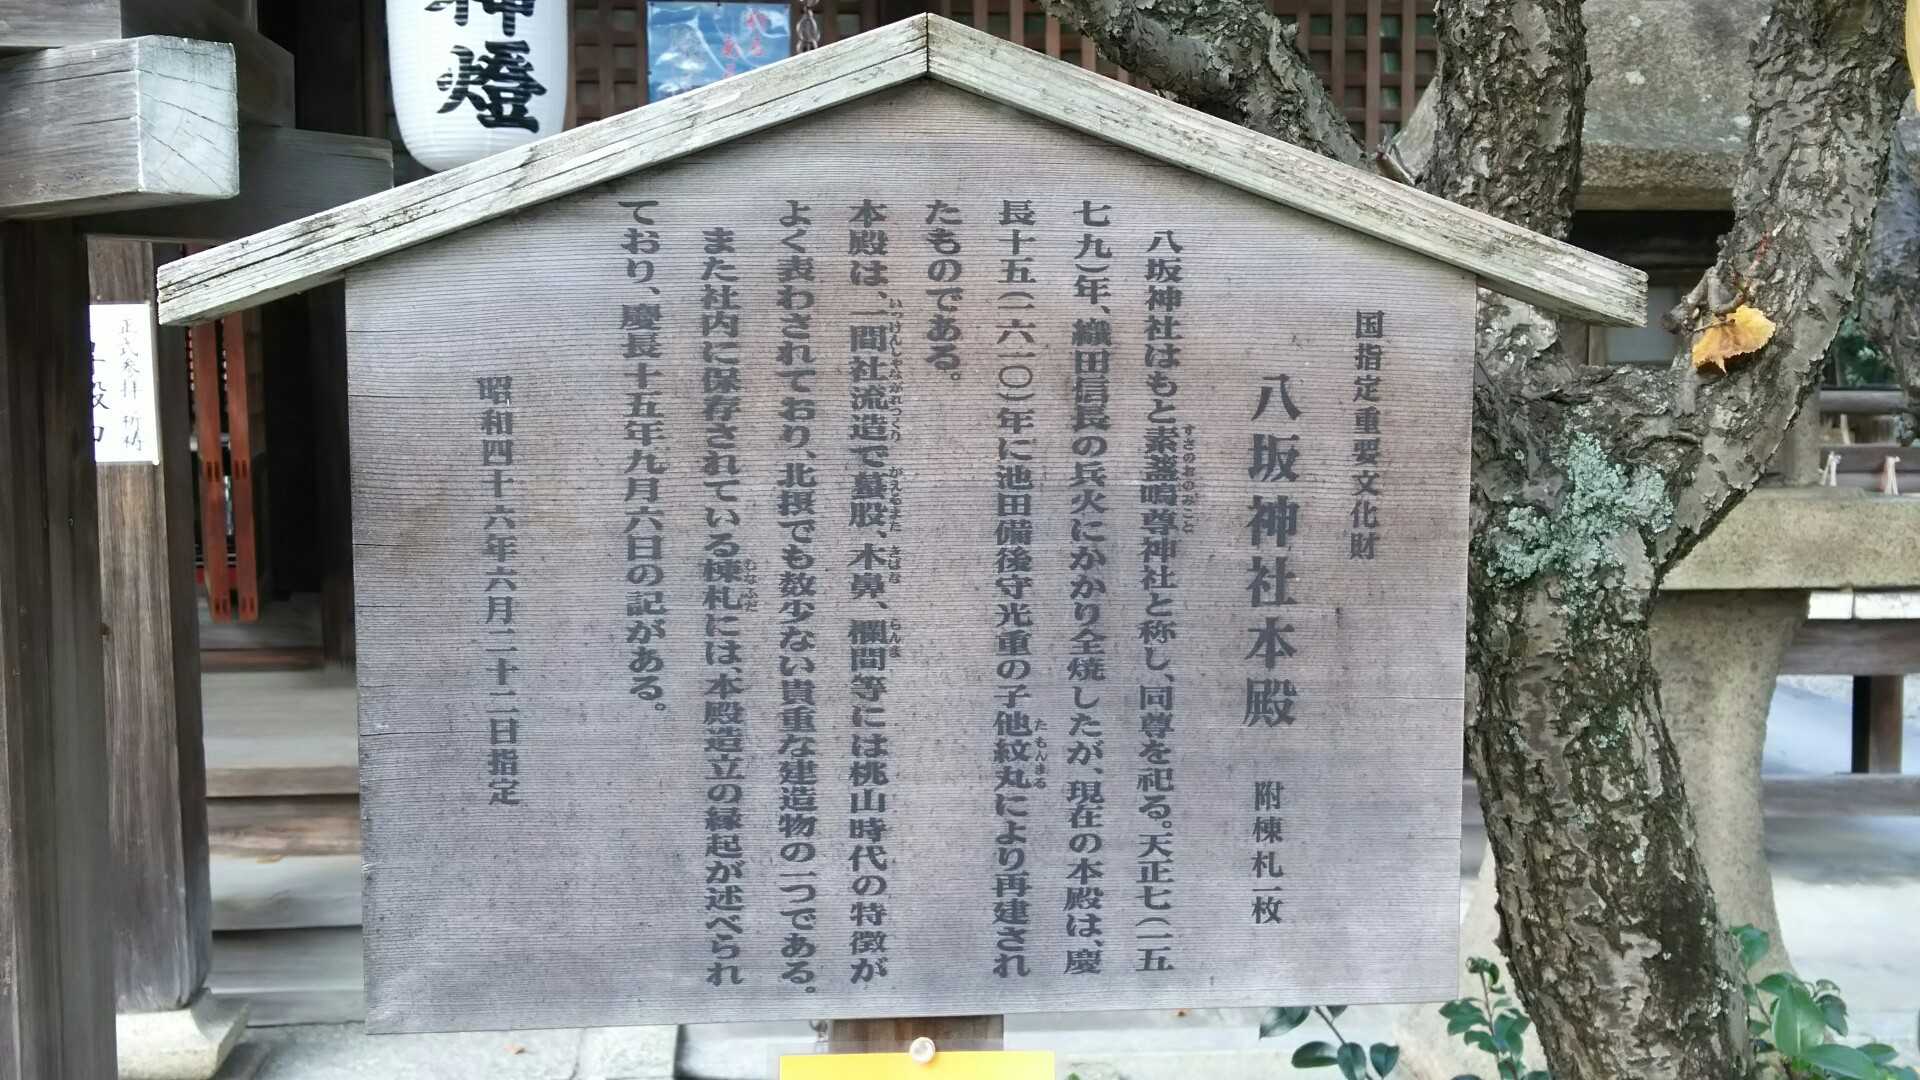 国指定重要文化財
八坂神社本殿 附棟札一枚
八坂神社はもと素盞嗚尊神社と称し、同尊を祀る。天正七(一五
すさのおのみこと
七九)年、織田信長の兵火にかかり全焼したが、現在の本殿は、慶
長十五(一六一〇)年に池田備後守光重の子他紋丸により再建され
たもんまる
たものである。
本殿は、一間社流造で蟇股、木鼻、欄間等には桃山時代の特徴が
いっけんしゃながれつくり かえるまた きばな らんま
よく表わされており、北摂でも数少ない貴重な建造物の一つである。
また社内に保存されている棟札には、本殿造立の縁起が述べられ
むなふだ
ており、慶長十五年九月六日の記がある。
昭和四十六年六月二十二日指定
神燈
正式参拝 祈祷